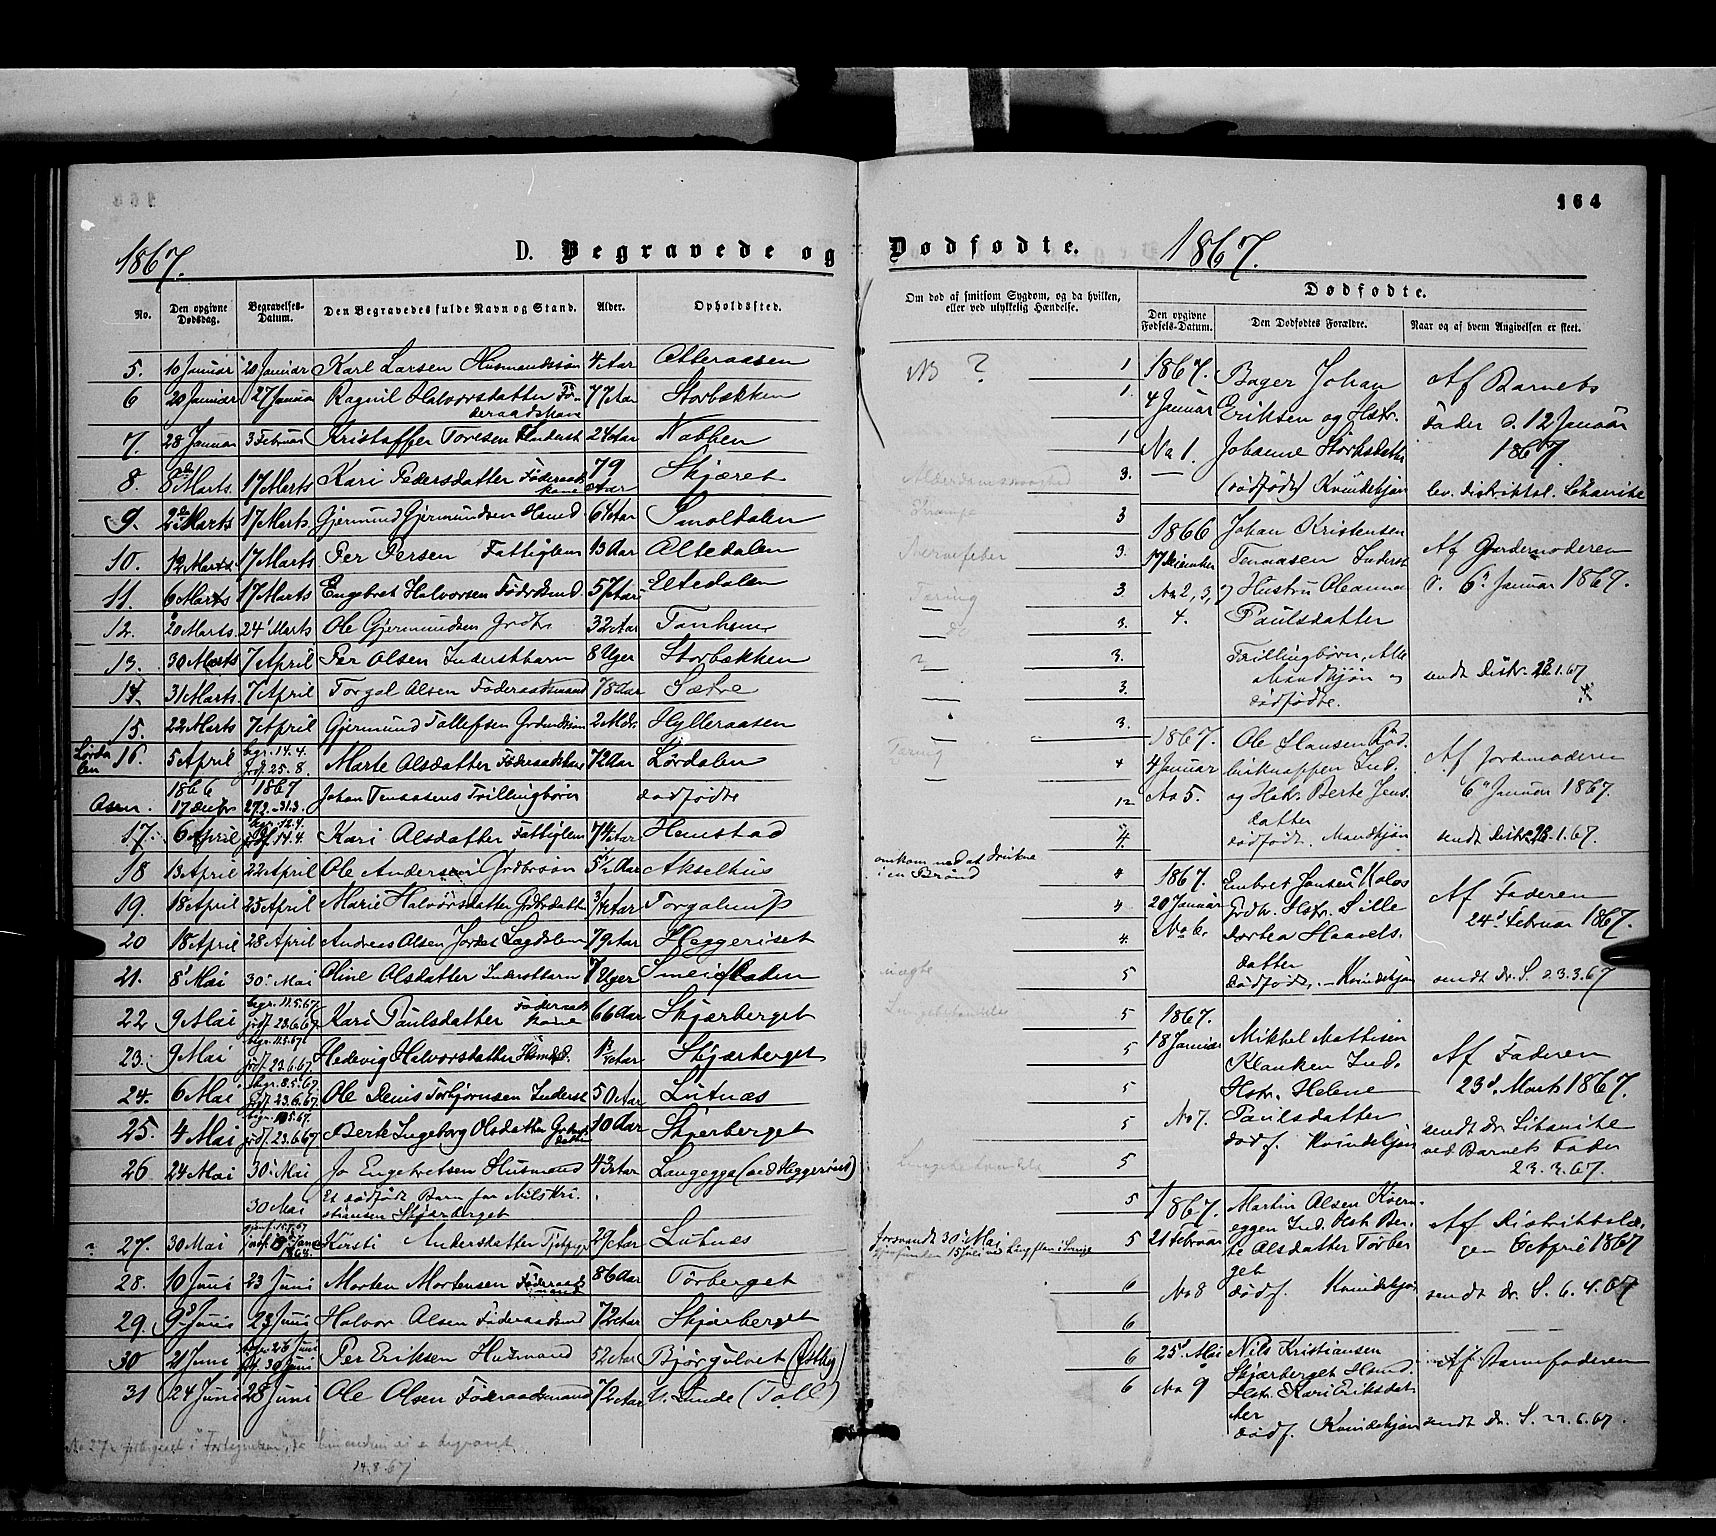 164
1867.
D. Begravede og
Dødfødte.
1867.
No.
Den opgivne Dødsdag.
Begravelses-Datum.
Den Begravedes fulde Navn og Stand.
Alder.
Opholdssted.
Om død af smitsom Sygdom, og da hvilken, eller ved ulykkelig Hændelse.
Dødfødte.
Den opgivne Fødsels-Datum.
Den Dødfødtes Forældre.
Naar og af hvem Angivelsen er skeet.
5. 10 Januar 20 Januar Karl Larsen Husmandssøn 4 Aar Atteraasen NB ? 1
6 20 Januar 27 Januar Ragnil Halvorsdatter Fø-
deraadskone 77 Aar Storbækken 1
7. 28 Januar 3 Februar Kristoffer Toresen Inderst 24 Aar Nabben 1
8. 8de Marts. 17 Marts Kari Pedersdatter Føderaads
kone 79 Aar Skjæret Alderdomssvaghed 3.
9. 2 Marts 17 Marts Gjermund Gjermundsen Hsmd. 64 Aar Smoldalen Krampe 3
10. 12 Marts 17 Marts Per Persen Fattiglem 13 Aar Altedalen Nervefeber 3.
11. 6 Marts 17 Marts Engebret Halvorsen Fødrdsmd 57 Aar Eltedalen Tæring 3
12. 20 Marts 24 Marts Ole Gjermundsen Grdbr. 32 Aar Tanhem — do 3.
13. 30 Marts 7 April Per Olsen Inderstbarn 8 Uger Storbækken ? 3.
14. 31 Marts 7 April Torgal Olsen Føderaadsmand 78 Aar Sætre — 3.
15. 22 Marts 7 April Gjermund Tollefsen Grdmdssøn 2 Mdr. Hylleraasen 3.
Lørdalen 16. 5 April begr. 14.4.
jrdf. 25.8. Marte Olsdatter Føderaadskone 72 Aar Lørdalen Tæring 4
Aasen. 1866
17 Decbr 1867
27.2.–31.3. Johan Tenaasens Trillingbørn dødfødte — 12
17. 6 April begr. 12.4.
jrdf. 14.4. Kari Olsdatter Fattiglem 74 Aar Hemstad 4.
18 13 April 22 April Ole Andersen Grdbrsøn 5½ Aar Akselhus omkom ved at drukne
i en Brønd 4
19. 18 April 25 April Marie Halvorsdatter Grdbrdatter 3/4 Aar 4
20 18 April 28 April Andreas Olsen Jordet Lægdslem 79 Aar Heggeriset 4.
21. 8 Mai 30 Mai Oline Olsdatter Inderstbarn 7 Uger 5
22 9 Mai begr. 11.5.67.
jrdf. 23.6.67. Kari Paulsdatter Føderaads
kone 66 Aar Skjærberget Lungebetændelse 5
23. 9 Mai begr. 11.5.67.
jrdf. 23.6.67. Hedevig Halvorsdatter Skjærberget 5
24. 6 Mai begr. 8.5.67.
jrdf. 23.6.67. Ole Denis Torbjørnsen Inderst 50 Aar Lutnæs 5
25. 4 Mai
jrdf. 23.6.67 Berte Ingeborg Olsdatter 10 Aar Skjærberget 5
26 24 Mai 30 Mai Jo Engebretsen Husmand 43 Aar Langegga (ved Heggeriset) Lungebetændelse 5
30 Mai Et dødfødt Barn fra Nils Kri-
stiansen Skjærberget 5
27. 30 Mai Kirsti Andersdatter 29 Aar Lutnæs forsvandt 30 Mai
gjenfunden 15 Juli 5
28. 10 Juni 23 Juni Morten Mortensen Føderaads
mand 86 Aar Tørberget 6
29. 9 Juni 23 Juni Halvor Olsen Føderaadsmd 72 Aar Skjærberget 6
30 21 Juni begr. 28 Juni
jrdf. 30 Juni Per Eriksen Husmand 52 Aar Bjørgulvet (Østby) 6
31 24 Juni 28 Juni Ole Olsen Føderaadsmand 72 Aar N. Lunde (Toll) 6
14.8.67
1867.
4 Januar
No 1. Bager Johan
Eriksen og Hstr.
Johanne Storksdatter
(dødfødt) Kvindekjøn Af Barnets
Fader d. 12 Januar
1867.
lev. distriktsl. Libanite
1866
17 December
No 2, 3, og
4. Johan Kristensen
Tenaasen Inderst
Hustru Oleanna
Paulsdatter
Trillingbørn, Alle
Mandkjøn og
dødfødte. Af Gjordemoderen
d. 6 Januar 1867.
sendt Distr. 28.1.67
1867.
4 Januar
No 5. Ole Hansen Rød-
birknappen Ind.
og Hstr. Berte Jens-
datter
dødfødt. Mandkjøn Af Jordemoderen
6 Januar 1867.
sendt Distr. 28.1.67.
1867.
20 Januar
No 6. Embret Jonsen Kolos
Grdbr. Hstr. Sille
Dortea Haavels-
datter
dødfødt. – Kvindekjøn Af Faderen
24 Februar 1867.
sendt Dr. S. 23.3.67
1867.
18 Januar
No 7. Mikkel Mathisen
Klanken Ind.
Hstr. Helene
Paulsdatter
dødf. Kvindekjøn Af Faderen
23 Marts 1867.
sendt Dr. Libanite
ved Barnets Fader
23.3.67.
1867.
21 Februar
No 8 Martin Olsen Kvern-
eggen Ind. Hstr. Ber-
te Olsdatter Tørber
get
dødf. Kvindekjøn Af Distriktslæ-
gen 6 April 1867
sendt Dr. S. 6.4.67
25 Mai
No 9 Nils Kristiansen
Skjærberget Hsmd.
Hstr. Kari Eriksdat
ter
dødf. Kvindekjøn Af Barnefaderen
sendt Dr. S. 22.6.67.